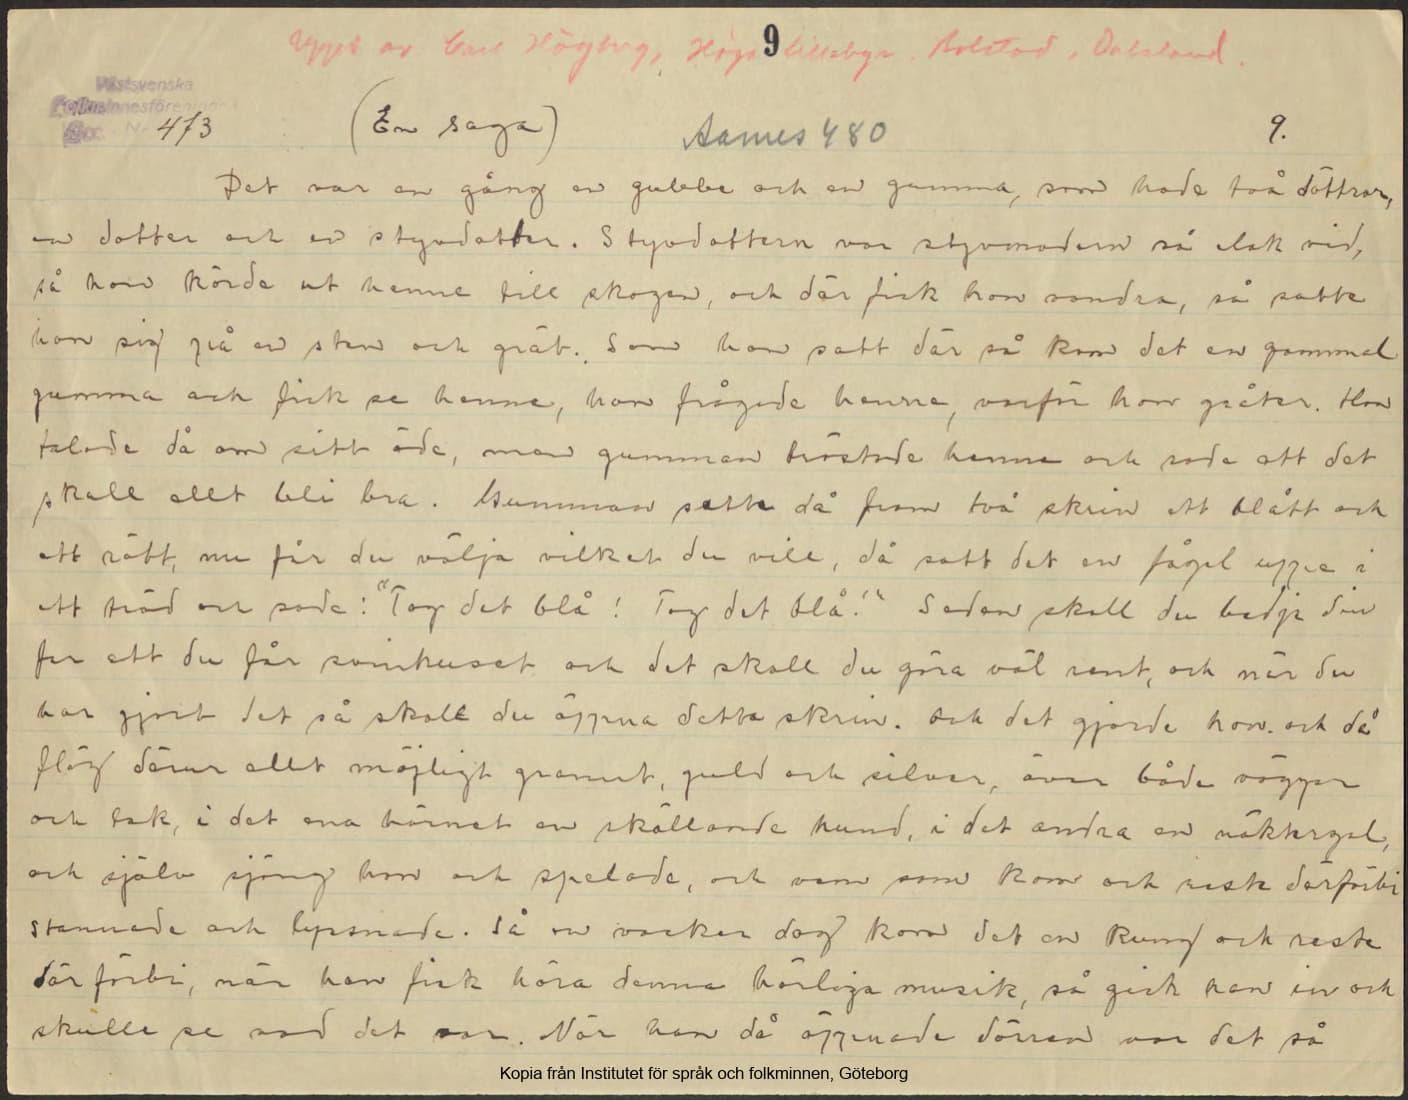 Uppt av Carl Högberg, Höga Lillebyn. Bolstad, Dalsland.
9
Västsvenska
Folkminnesföreningen
Acc. Nr. 473
(En saga)
Aarnes 480
9.
Det var en gång en gubbe och en gumma, som hade två döttrar,
en dotter och en styvdotter. Styvdottern var styvmodern så elak vid,
så hon körde ut henne till skogen, och där fick hon vandra, så satte
hon sig på en sten och grät. Som hon satt där så kom det en gammal
gumma och fick se henne, hon frågade henne, varför hon gråter. Hon
talade då om sitt öde, men gumman tröstade henne och sade att det
skall allt bli bra. Gumman satte då fram två skrin ett blått och
ett rött, nu får du välja vilket du vill, då satt det en fågel uppe i
ett träd och sade: "Tag det blå! Tag det blå!" Sedan skall du bedja din
far att du får svinhuset och det skall du göra väl rent, och när du
har gjort det så skall du öppna detta skrin. Och det gjorde hon. och då
flög därur allt möjligt grannt, guld och silver, över både väggar
och tak, i det ena hörnet en skällande hund, i det andra en näktergal,
och själv sjöng hon och spelade, och vem som kom och reste därförbi
stannade och lyssnade. Så en vacker dag kom det en kung och reste
därförbi, när han fick höra denna härliga musik, så gick han in och
skulle se vad det var. När han då öppnade dörren var det så
Kopia från Institutet för språk och folkminnen, Göteborg